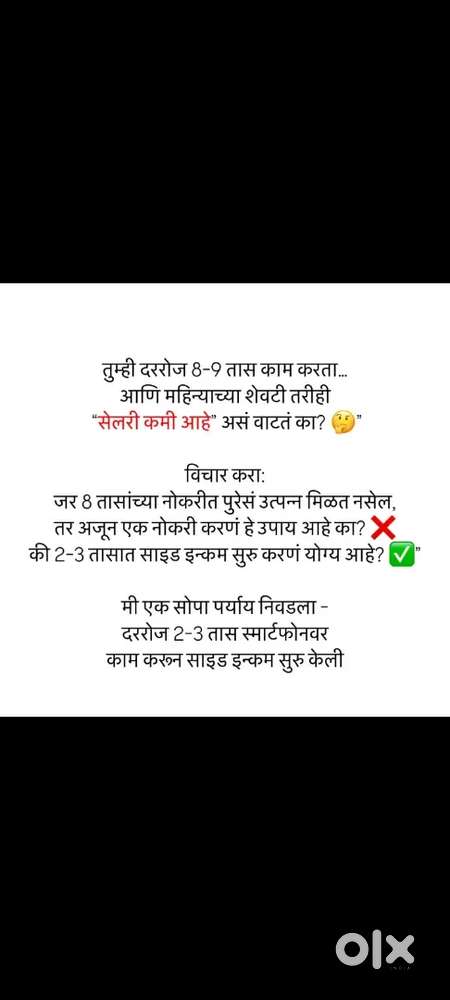 तुम्ही दररोज 8-9 तास काम करता...
आणि महिन्याच्या शेवटी तरीही
“सेलरी कमी आहे” असं वाटतं का? 🤔”
विचार करा:
जर 8 तासांच्या नोकरीत पुरेसं उत्पन्न मिळत नसेल,
तर अजून एक नोकरी करणं हे उपाय आहे का? ❌
की 2-3 तासात साइड इन्कम सुरु करणं योग्य आहे? ✅”
मी एक सोपा पर्याय निवडला -
दररोज 2-3 तास स्मार्टफोनवर
काम करून साइड इन्कम सुरु केली
olx
INDIA